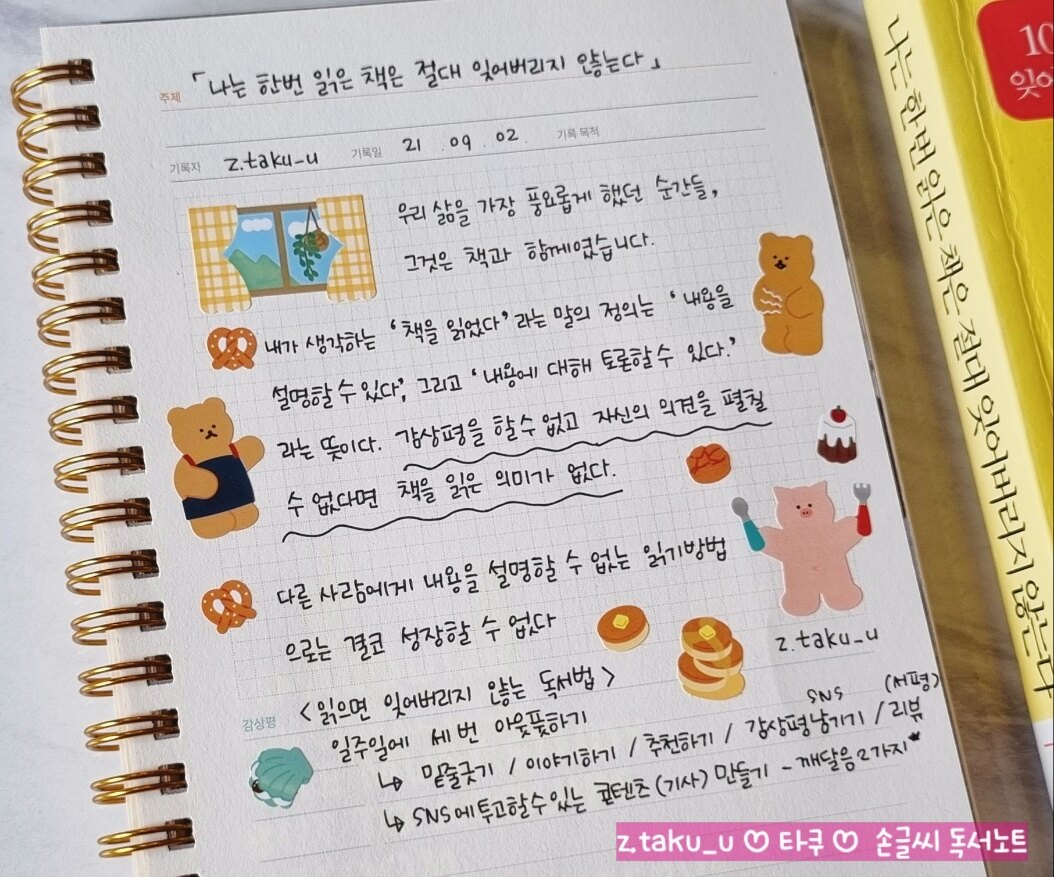 「나는 한번 읽은 책은 절대 잊어버리지 않는다」
주제
기록자 z.taku_u 기록일 21 . 09 . 02. 기록 목적
우리 삶을 가장 풍요롭게 했던 순간들,
그것은 책과 함께였습니다.
내가 생각하는 ‘책을 읽었다’라는 말의 정의는 ‘내용을
설명할 수 있다’, 그리고 ‘내용에 대해 토론할 수 있다.’
라는 뜻이다. 감상평을 할 수 없고 자신의 의견을 펼칠
수 없다면 책을 읽은 의미가 없다.
다른 사람에게 내용을 설명할 수 없는 읽기방법
으로는 결코 성장할 수 없다
z.taku_u
감상평 <읽으면 잊어버리지 않는 독서법>
일주일에 세 번 아웃풋하기
SNS (서평)
↳ 밑줄긋기 / 이야기하기 / 추천하기 / 감상평남기기 / 리뷰
↳ SNS에 투고할 수 있는 콘텐츠(기사) 만들기 - 깨달음 2가지
나는 한번 읽은 책은 절대 잊어버리지 않는다
10
잊어
z.taku_u ♡ 타쿠 ♡ 손글씨 독서노트